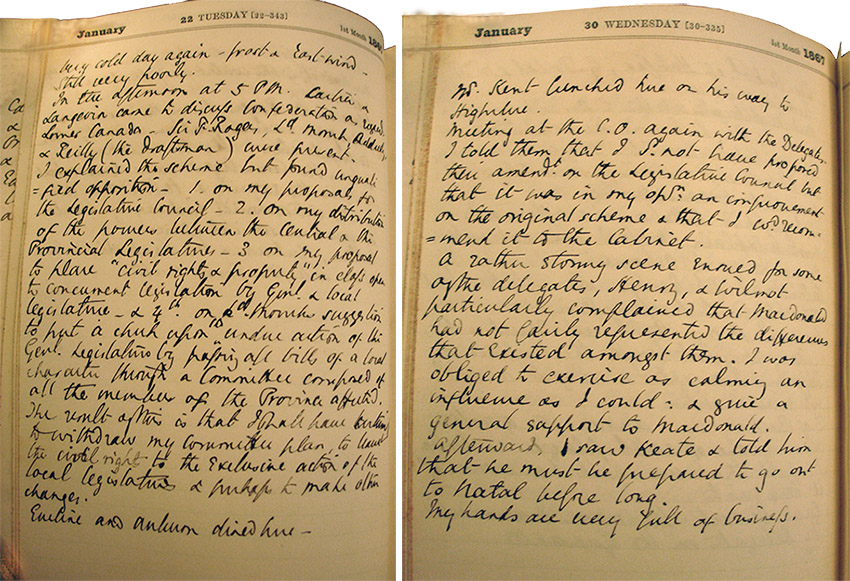 January 22 TUESDAY [22-343] 1st Month 186
Very cold day again - frost & East wind -
Still very poorly.
In the afternoon at 5 P.M. Cartier &
Langevin came to discuss Confederation as regards
Lower Canada - Sir F. Rogers, Ld. Monck, Adderley
& Reilly (the draftsman) were present -
I explained the scheme but found unquali
=fied opposition - 1. on my proposals for
the Legislative Council - 2. on my distribution
of the powers between the Central & the
Provincial Legislatures - 3 on my proposal
to place "civil rights & property" in class open
to concurrent legislation by Genl. & local
legislature - & 4th. on Ld. Monck's suggestion
to put a check upon undue action of the
Genl. Legislature by passing all bills of a local
character through a Committee composed of
all the members of the Province affected.
The result of this is that I shall have
to withdraw my committee plan, to leave
the civil rights to the Exclusive action of the
local legislatures & perhaps to make other
changes.
Eveline and Auberon dined here -
January 30 WEDNESDAY [30-335] 1st Month 1867
Mr. Kent lunched here on his way to
Highclere.
Meeting at the C.O. again with the Delegates.
I told them that I Sd. not have proposed
their amendt. on the Legislative Council but
that it was in my opn. an improvement
on the original scheme & that I wd recom-
=mend it to the Cabinet.
A rather stormy scene ensued for some
of the delegates, Henry, & Wilmot
particularly complained that Macdonald
had not fairly represented the differences
that existed amongst them. I was
obliged to exercise as calming an
influence as I could: & give a
general support to Macdonald.
Afterwards I saw Keate & told him
that he must be prepared to go out
to Natal before long.
My hands are very full of business.